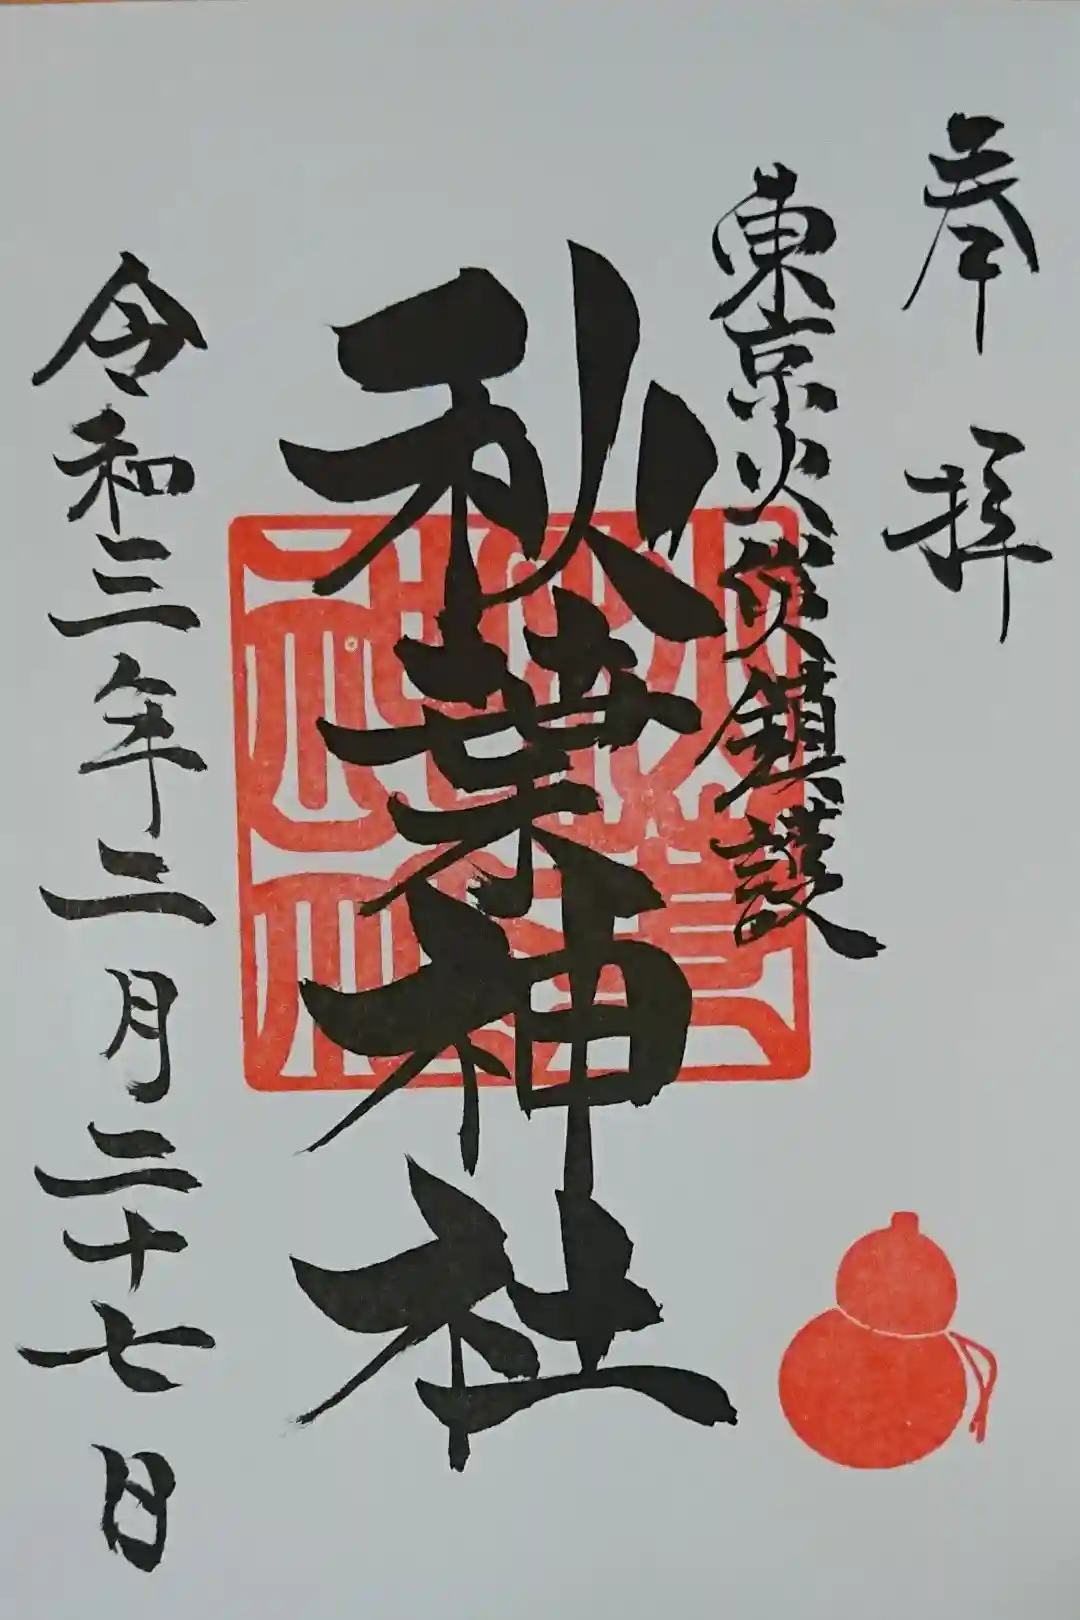 奉拝
東京火災鎮護
秋葉神社
令和三年二月二十七日